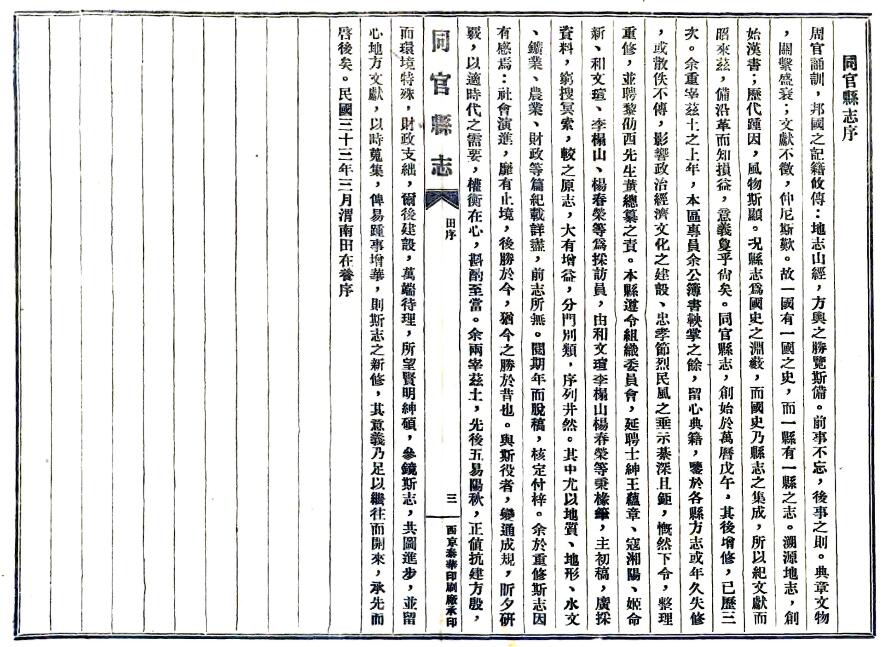 同官縣志序
周官誦訓，邦國之記籍攸傳：地志山經，方輿之勝覽斯備。前事不忘，後事之則。典章文物
，關繫盛衰；文獻不徵，仲尼斯歎。故一國有一國之史，而一縣有一縣之志。溯源地志，創
始漢書；歷代踵因，風物斯顯。况縣志爲國史之淵藪，而國史乃縣志之集成，所以紀文獻而
昭來茲，備沿革而知損益，意義敻乎尙矣。同官縣志，創始於萬曆戊午，其後增修，已歷三
次。余重宰茲土之上年，本區專員余公簿書鞅掌之餘，留心典籍，鑒於各縣方志或年久失修
，或散佚不傳，影響政治經濟文化之建設、忠孝節烈民風之垂示綦深且鉅，慨然下令，整理
重修，並聘黎劭西先生黃總纂之責。本縣遵令組織委員會，延聘士紳王蘊章、寇湘陽、姬命
新、和文瑄、李榻山、楊春榮等爲採訪員，由和文瑄李榻山楊春榮等秉椽筆，主初稿，廣採
資料，窮搜冥索，較之原志，大有增益，分門別類，序列井然。其中尤以地質、地形、水文
、鑛業、農業、財政等篇紀載詳盡，前志所無。閱期年而脫稿，核定付梓。余於重修斯志因
有感焉：社會演進，靡有止境，後勝於今，猶今之勝於昔也。與斯役者，變通成規，昕夕研
覈，以適時代之需要，權衡在心，斟酌至當。余兩宰茲土，先後五易陽秋，正値抗建方殷，
同官縣志
田序
三
西京泰華印刷廠承印
而環境特殊，財政支絀，爾後建設，萬端待理，所望賢明紳碩，參鏡斯志，共圖進步，並留
心地方文獻，以時蒐集，俾易踵事增華，則斯志之新修，其意義乃足以繼往而開來，承先而
啓後矣。民國三十三年三月渭南田在養序